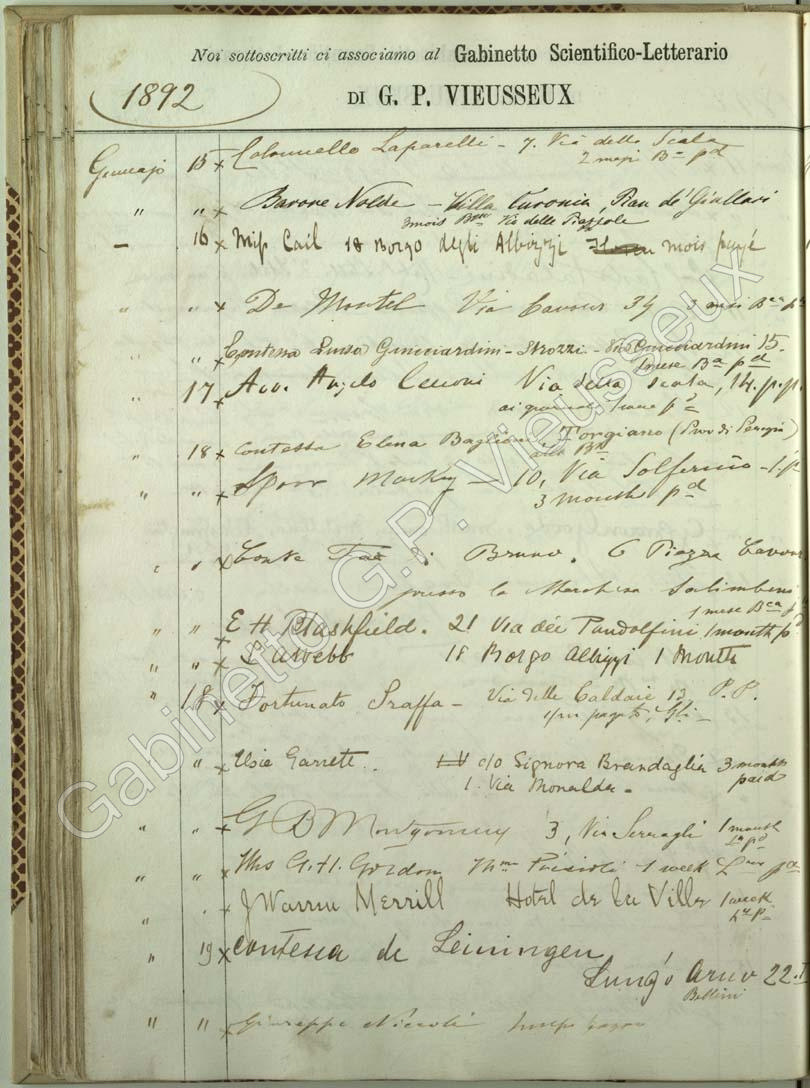 Noi sottoscritti ci associamo al Gabinetto Scientifico-Letterario
DI G. P. VIEUSSEUX
1892
Gennajo 15 x Colonnello Laparelli - 7. Via della Scala
2 mesi Ba pd
" " x Barone Nolde - Villa Curonia, Pian de' Giullari
3 mois Via delle Piazzole
- 16 x Miss Cail 18 Borgo degli Albizzi mois payé
" " x De Montel Via Cavour 34 3 mesi Ba
" " x Contessa Luisa Guicciardini-Strozzi - Via Guicciardini 15.
1 mese Ba pd
" 17 x Avv. Angelo Cecconi Via della Scala, 14. p.p.
ai giornali
" 18 x Contessa Elena Baglioni Torgiano (Prov di Perugia)
" " x Mackey - 10, Via Solferino -
3 months pd
" " x Conte Bruno. 6 Piazza Cavour
presso la Marchesa Salimbeni
1 mese Bca
" " x E H Blashfield. 21 Via dei Pandolfini 1 month
" " x 18 Borgo Albizzi 1 Month
" 18 x Fortunato Sraffa - Via delle Caldaie 13 P.P.
" x Elsie Garrett. c/o Signora Brandaglia 3 months
1. Via Monalda. paid
" " x G D Montgomery 3, Via Serragli 1 month
" " x Mrs G. H. Gordon 1 week
" . x J Warren Merrill Hotel de la Ville 1 week
" 19 x Contessa de Leiningen
Lung'o Arno 22.
Bellini
" " x Giuseppe Niccoli
Gabinetto G. P. Vieusseux